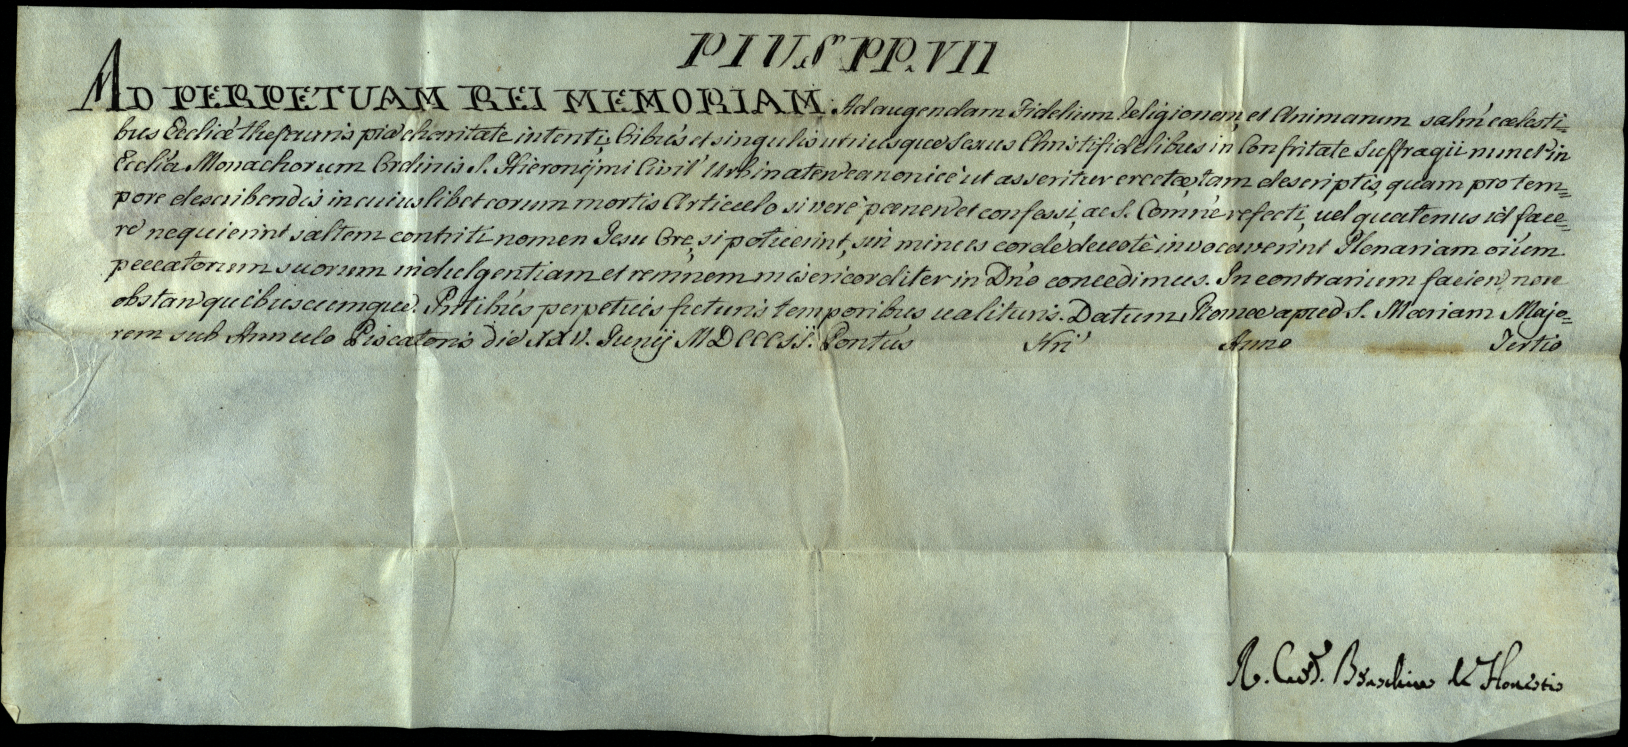 PIUS PP. VII
AD PERPETUAM REI MEMORIAM. Ad augendam Fidelium Religionem, et Animarum salm cœlesti=
bus Ecclie thesauris pia charitate intenti, oibus et singulis utriusque Sexus Christifidelibus in Confritate Suffragii nunct in
Ecclia Monachorum Ordinis S. Hieronijmi Civit Urbinaten canonice ut asseritur erectæ, tam descriptis, quam pro tem=
pore describendis in cuiuslibet eorum mortis Articulo si vere pænen et confessi, ac S. Comnè refecti, vel quatenus id face=
re nequierint saltem contriti nomen Jesu Ore, si potuerint, sin minus corde devotè invocaverint Plenariam oium
peccatorum suorum indulgentiam et remnem misericorditer in Dno concedimus. In contrarium facien, non
obstan quibuscumque. Pntibus perpetuis futuris temporibus valituris. Datum Romæ apud S. Mariam Majo=
rem sub Annulo Piscatoris die XXV. Junij MDCCCII. Pontus Nri Anno Tertio
R. Card. Braschius de Honestis